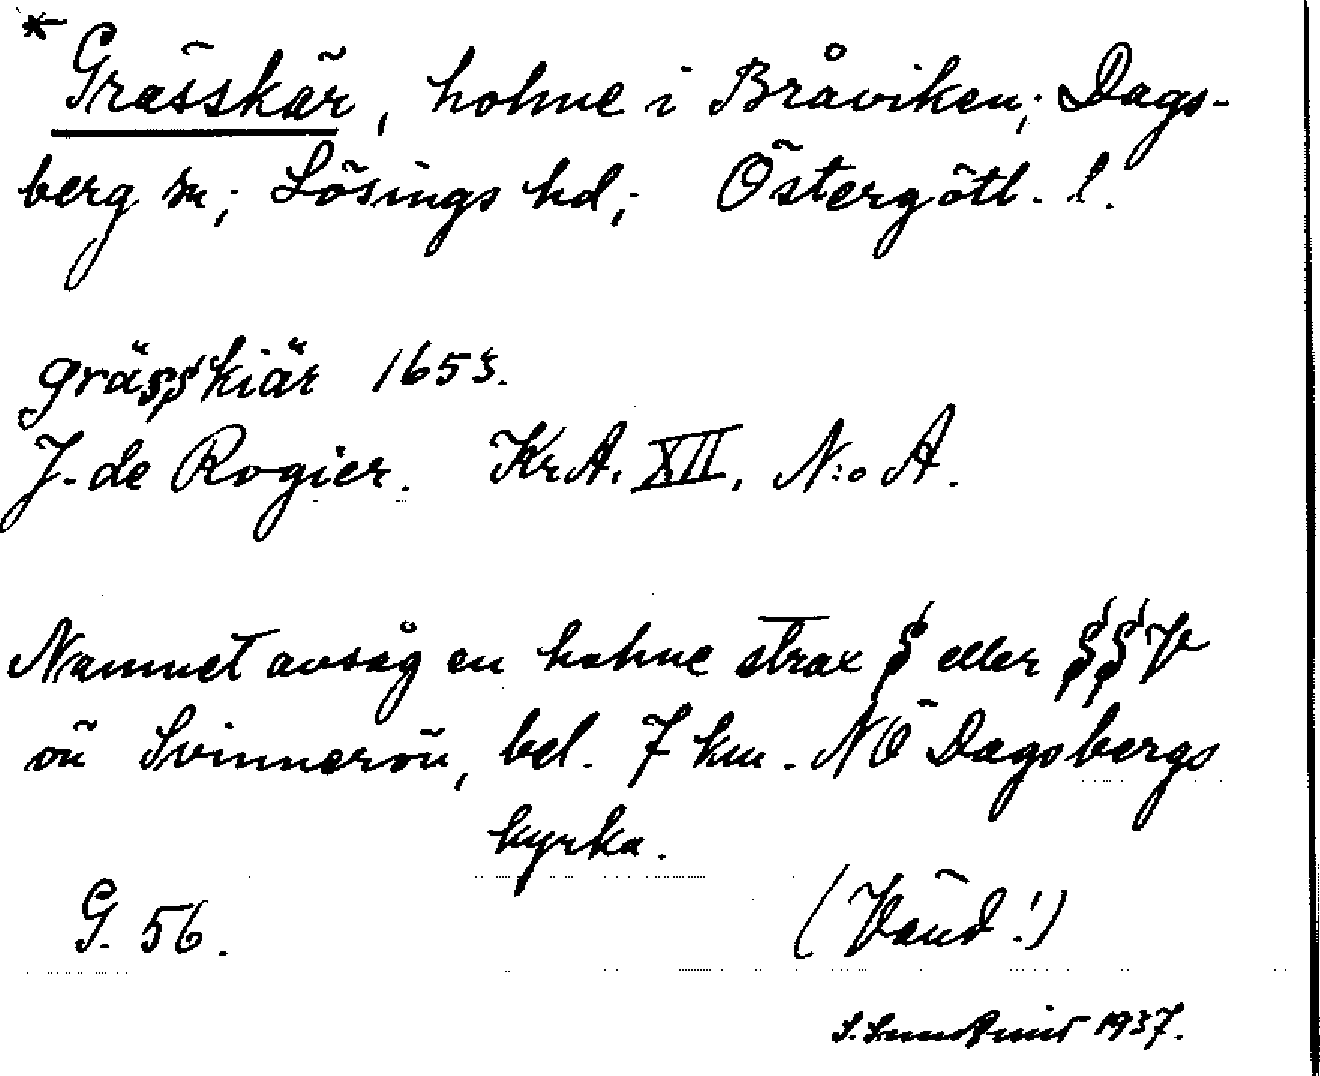 * Grässkär, holme i Bråviken; Dags-
berg sn; Lösings hd; Östergötl. l.
grässkiär 1653.
J. de Rogier. KrA. XII, N:o A.
Namnet avsåg en holme strax S eller SSV
om Svinnerön, bel. 7 km. NÖ Dagsbergs
kyrka.
G. 56.
(Vänd!)
S. 1937.